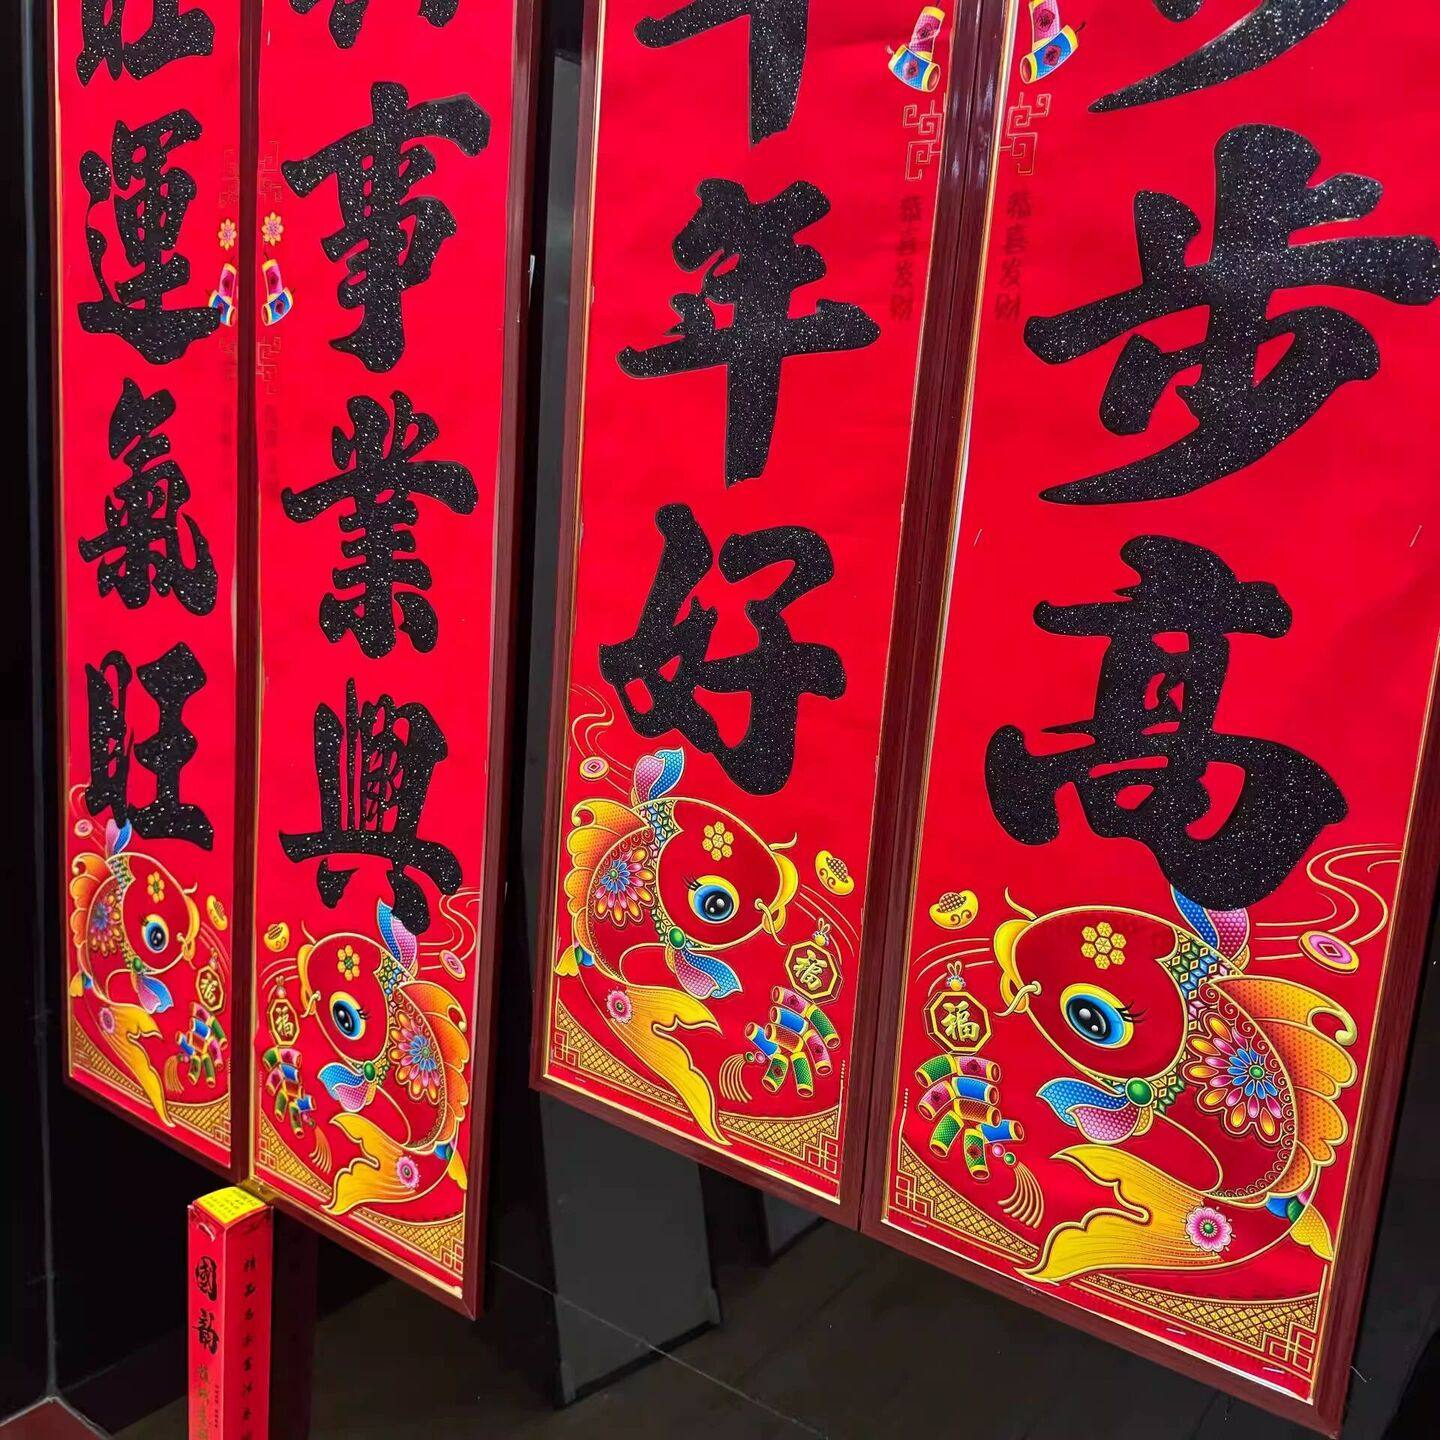 旺運氣旺
事業興
年年好
步步高
恭喜发财
恭喜发财
福
福
福
福
國韻